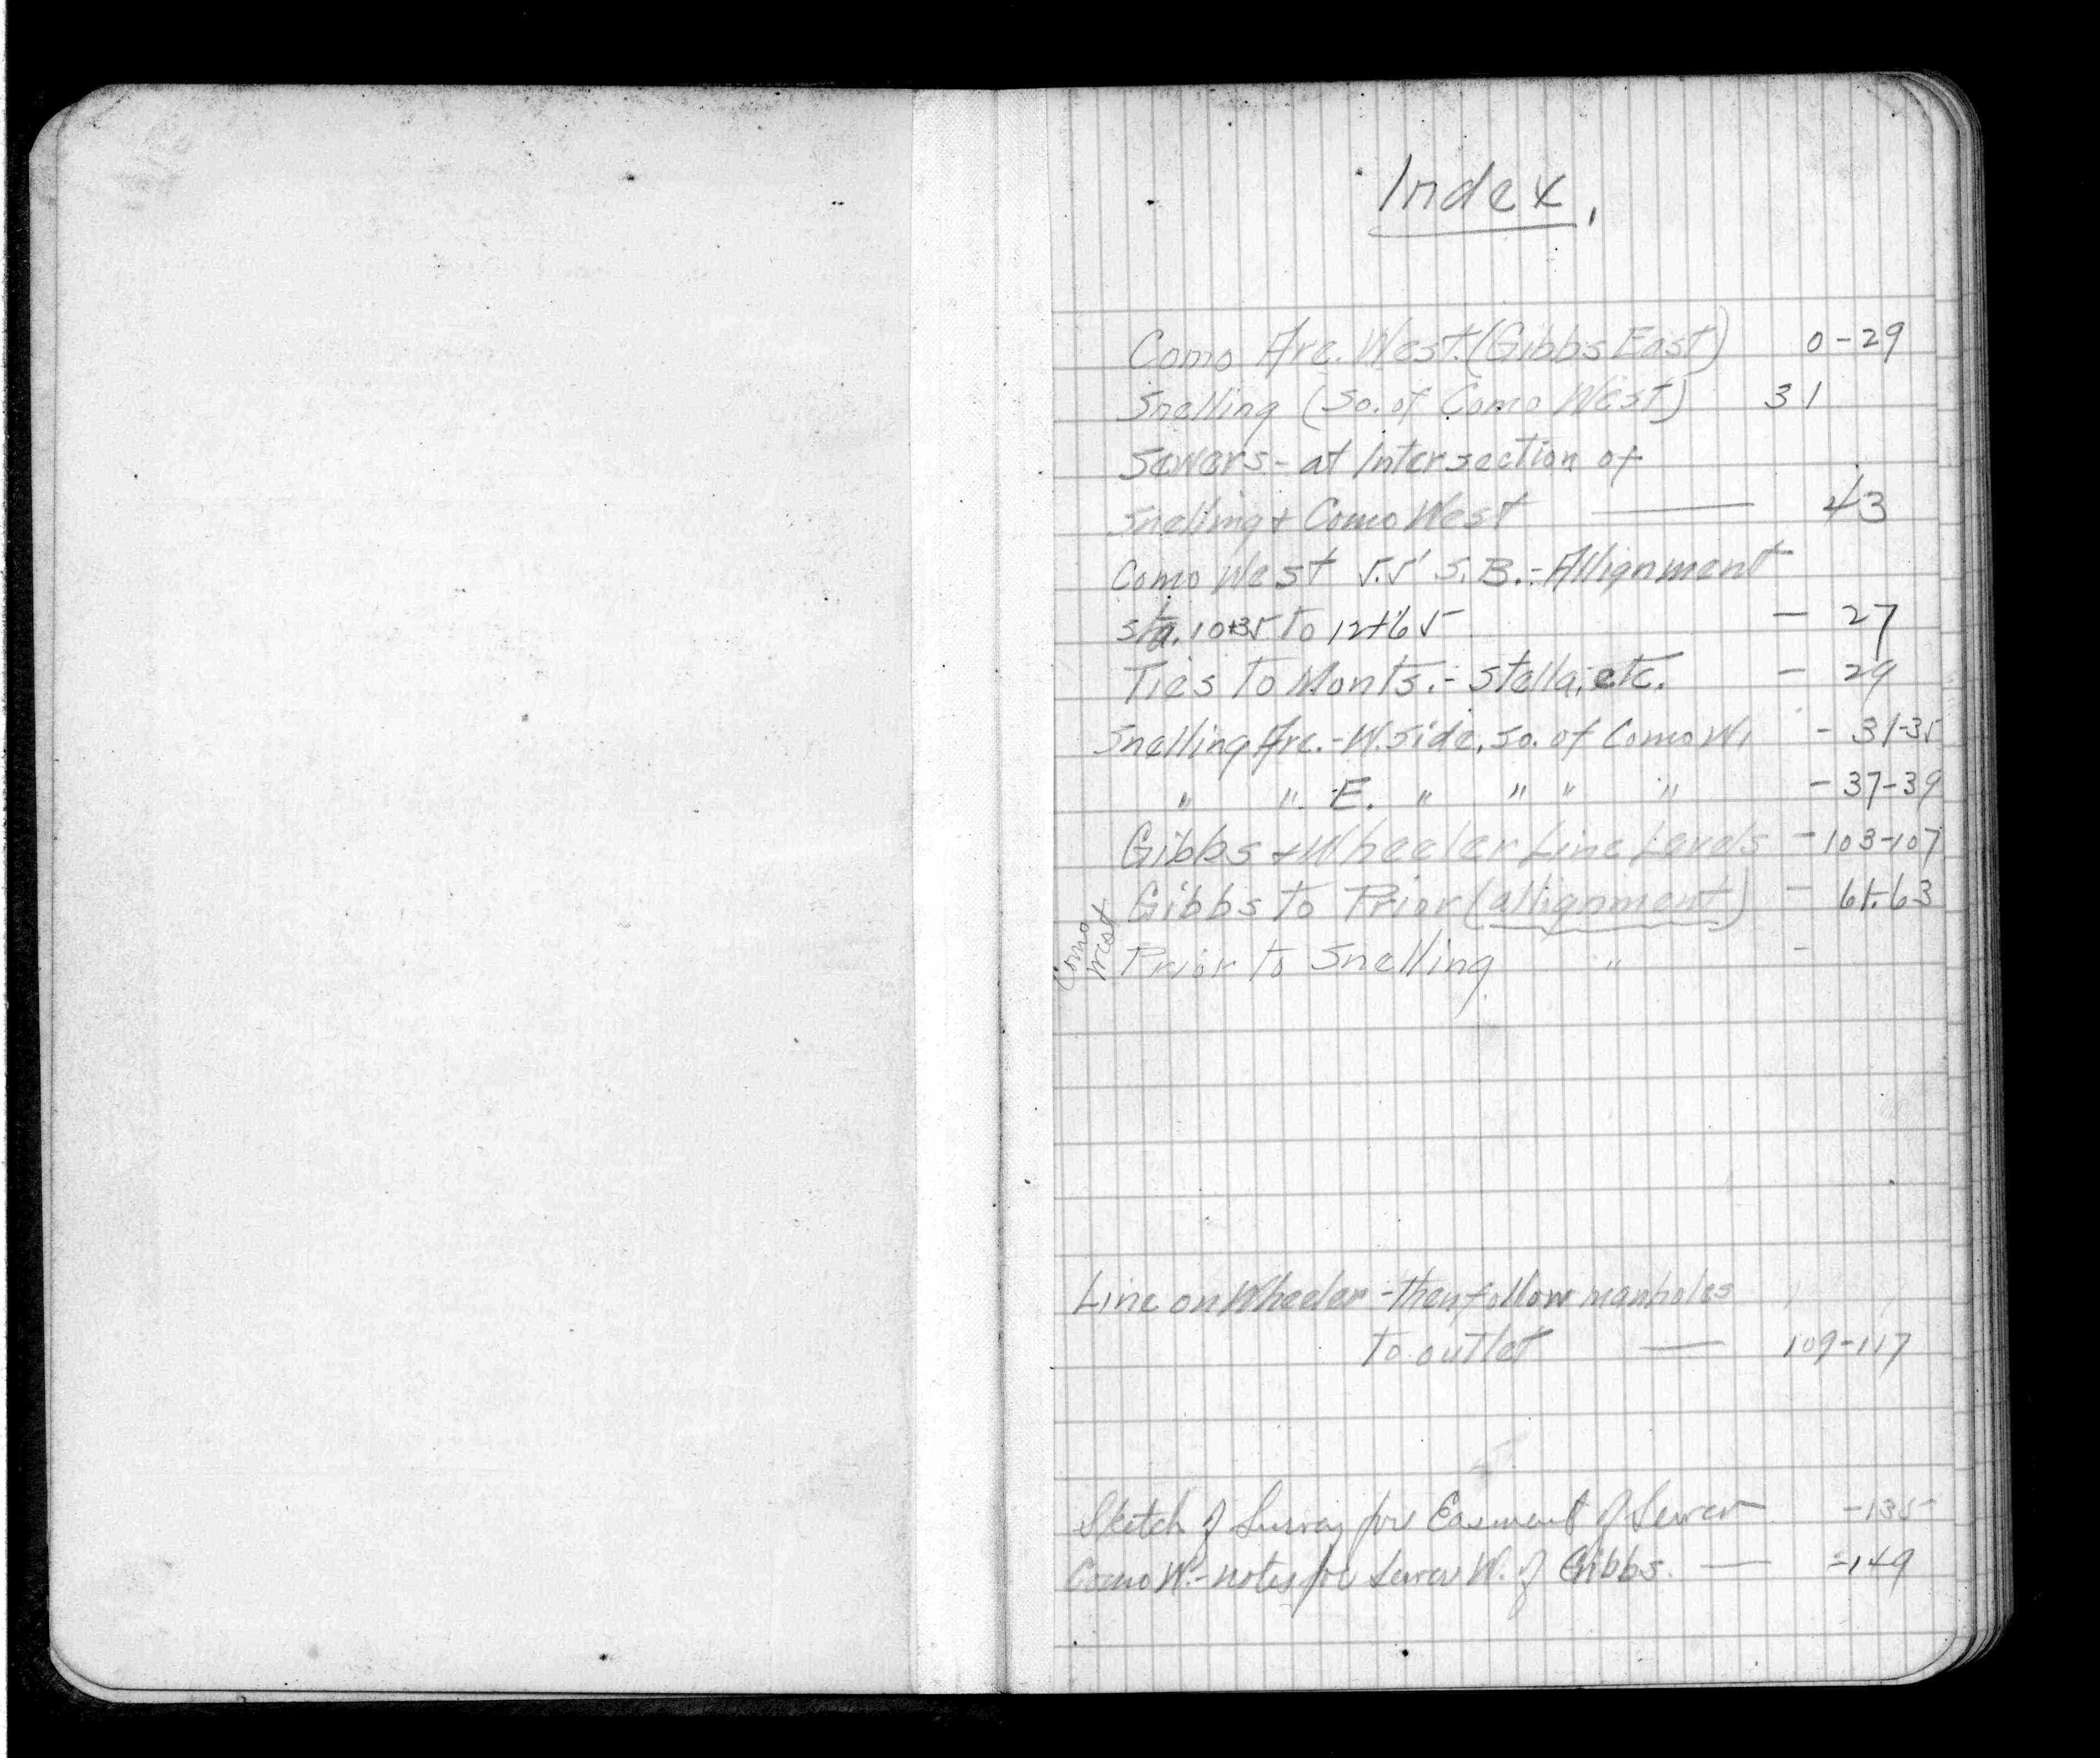 Index.
Como Ave. West. (Gibbs East) 0-29
Snelling (So. of Como West) 31
Sewers - at Intersection of
Snelling & Como West — 43
Como West 5.5' S.B. - Allignment
Sta. 10+35 to 12+65 - 27
Ties to Monts. - Stella, etc. - 29
Snelling Ave. - W. Side, So. of Como W. - 31-35
" " E. " " " " - 37-39
Gibbs & Wheeler Line Levels - 103-107
Gibbs to Prior (allignment) - 61-63
Como West
Prior to Snelling " -
Line on Wheeler - then follow manholes
to outlet — 109-117
Sketch of Survey for Easment of Sewer - 135
Como W. - notes for Sewer W. of Gibbs. — -149